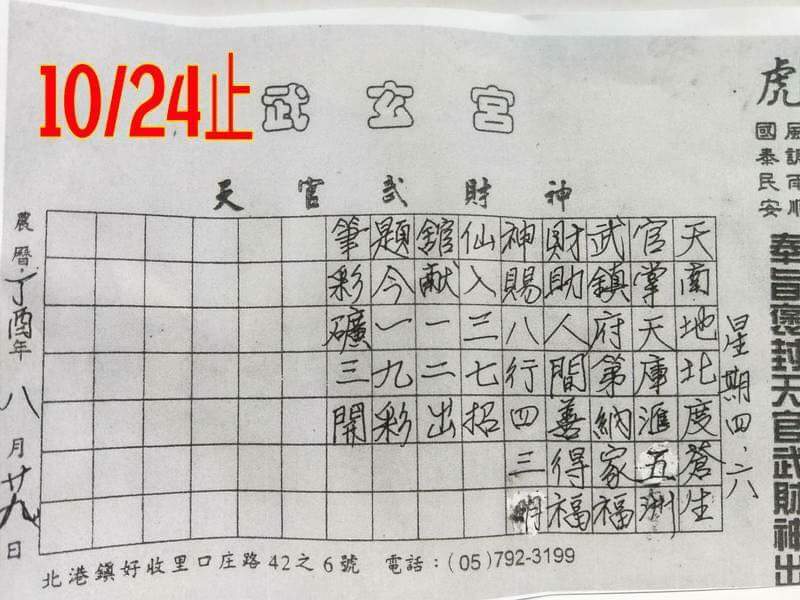 10/24止
武玄宮
天官武財神
虎
風調雨順
國泰民安
奉旨褒封天官武財神出
星期四.六
天南地北度蒼生
官掌天庫滙五洲
武鎮府第納家福
財助人間善得福
神賜八行四三
仙入三七招
舘献一二出
題今一九彩
筆彩礦三開
農曆丁酉年八月廿九日
北港鎮好收里口庄路42之6號 電話：(05)792-3199